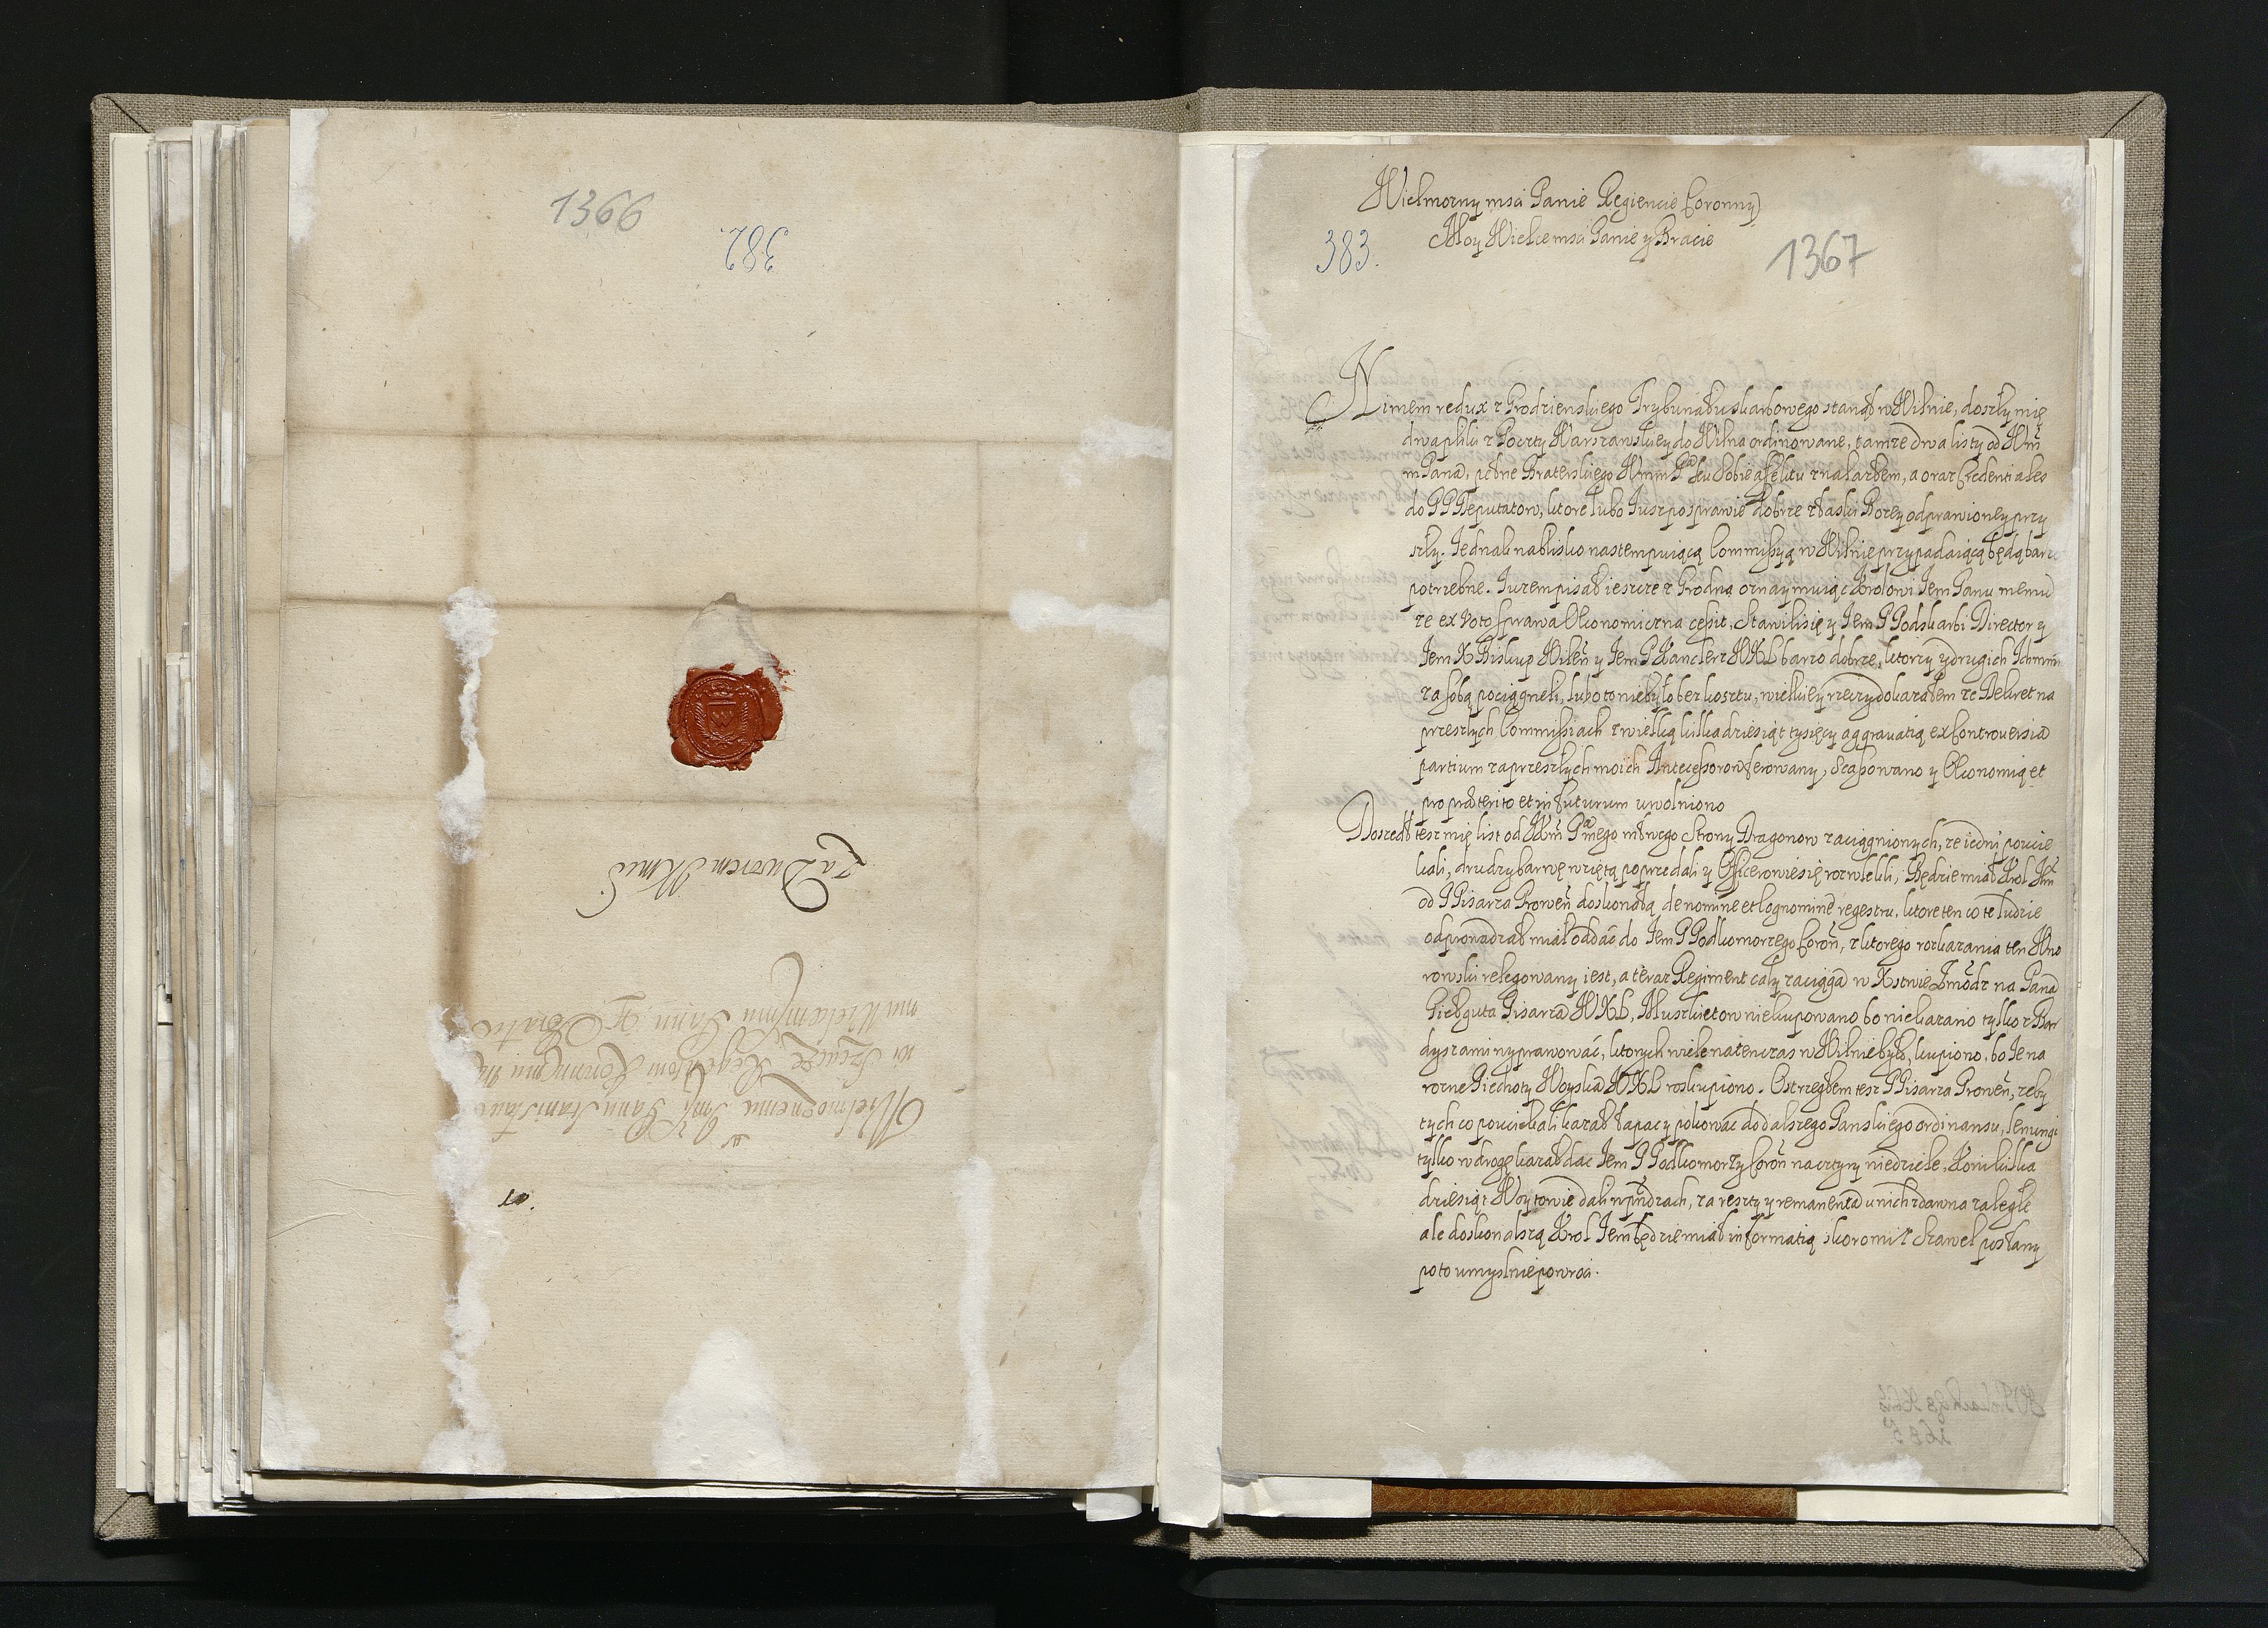 1366
382.
Za Dworem JKMci
Wielmoznemu Jmsci Panu Stanisławo
wi Szczuce Regentowi Koronnemu My
mu Wielcemsciwemu Panu y Bratu
10.
Wielmozny msci Panie Regiencie Coronny
Moy Wielce msci Panie y Bracie
383.
1367
Nimem redux z Grodzienskiego Trybunału skarbowego stanął w Wilnie, doszły mię
dwa pkła z Poczty Warszawskiey do Wilna ordinowane, tamze dwa listy od Wm
m Pana, pełne Braterskiego Wmm Pa ku sobie afektu znalazłem, a oraz Credentiales
do PP Deputatow, ktore lubo iusz po sprawie dobrze z łaski Bozey odprawioney przy
szły. Jednak na blisko nastempuiącą Commissyą w Wilnie przypadaiącą będą barzo
potrzebne. Iuzem pisał ieszcze z Grodna oznaymuiąc Krolowi Jem Panu memu
ze ex voto sprawa Oeconomiczna cessit, stawili się y Jem P Podskarbi Director y
Jem X Biskup Wilen y Jem P Kanclerz WXL barzo dobrze, ktorzy y drugich Ichmm
za sobą pociągneli, lubo to nie było bez kosztu, wielkiey rzeczy dokazałem ze Dekret na
przeszłych Commissiach z wielką kilkadziesiąt tysięcy aggrauatią ex controuersia
partium za przeszłych moich Antecessorow ferowany, scassowano y Oeconomią et
pro præterito et in futurum uwolniono
Doszedł tesz mię list od Wm Pa mego młwego strony Dragonow zaciągnionych, ze iedni poucie
kali, drudzy barwę wziętą poprzedali y Officerowie się rozwlekli, Będzie miał Krol Jm
od P Pisarza Prowen doskonałą de nomine et cognomine regestru, ktore ten co te ludzie
odprowadzał miał oddać do Jem P Podkomorzego Coron, z ktorego rozkazania ten Wno
rowski relegowany iest, a teraz Regiment cały zaciąga w Xstwie Zmudz na Pana
Giełguta Pisarza WXL, Muszkietow nie kupowano bo nie kazano tylko z Bar
dyszami wyprawować, ktorych wiele natenczas w Wilnie było, kupiono, bo Je na
rozne Piechoty Woyska WXL roskupiono. Ostrzegłem tesz P Pisarza Prowen, zeby
tych co pouciekali kazał łapac y pokować do dalszego Panskiego ordinansu, lenungi
tylko w drogę kazał dac Jem P Podkomorzy Coron na cztyry niedziele, Koni kilka
dziesiąt Woytowie dali w pndzach, za reszty y remanenta u nich zdawna zaległe
ale doskonalszą Krol Jem będzie miał informatią skoro mi z Szawel posłany
po to umyslnie powroci.